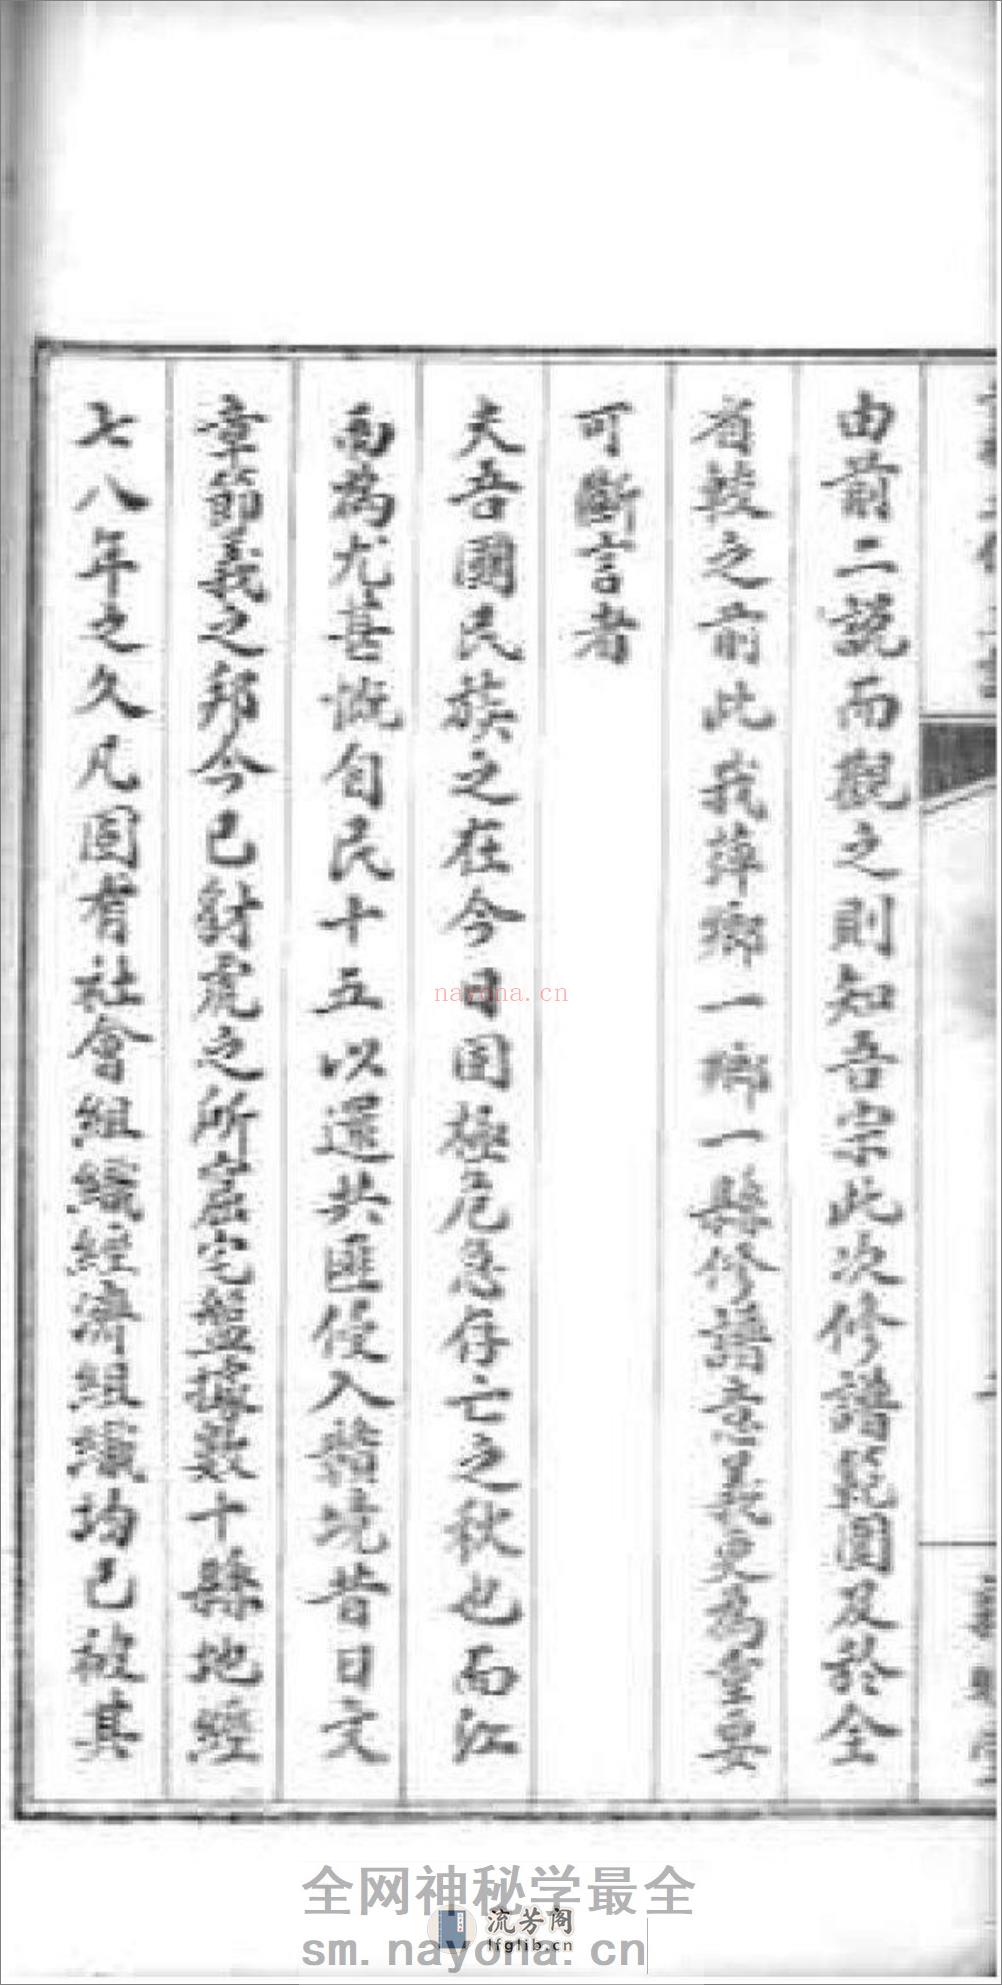 由前二說而觀之則知吾宗此次修譜範圍及於全
省較之前此我萍鄉一鄉一縣修譜意義更為重要
可斷言者
夫吾國民族之在今日困極危急存亡之秋也而江
西為尤甚慨自民十五以還共匪侵入贛境昔日文
章節義之邦今已豺虎之所窟宅盤據數十縣地經
七八年之久凡固有社會組織經濟組織均已被其
nayona.cn
全网神秘学最全
流芳阁
lfglib.cn
sm.nayona.cn